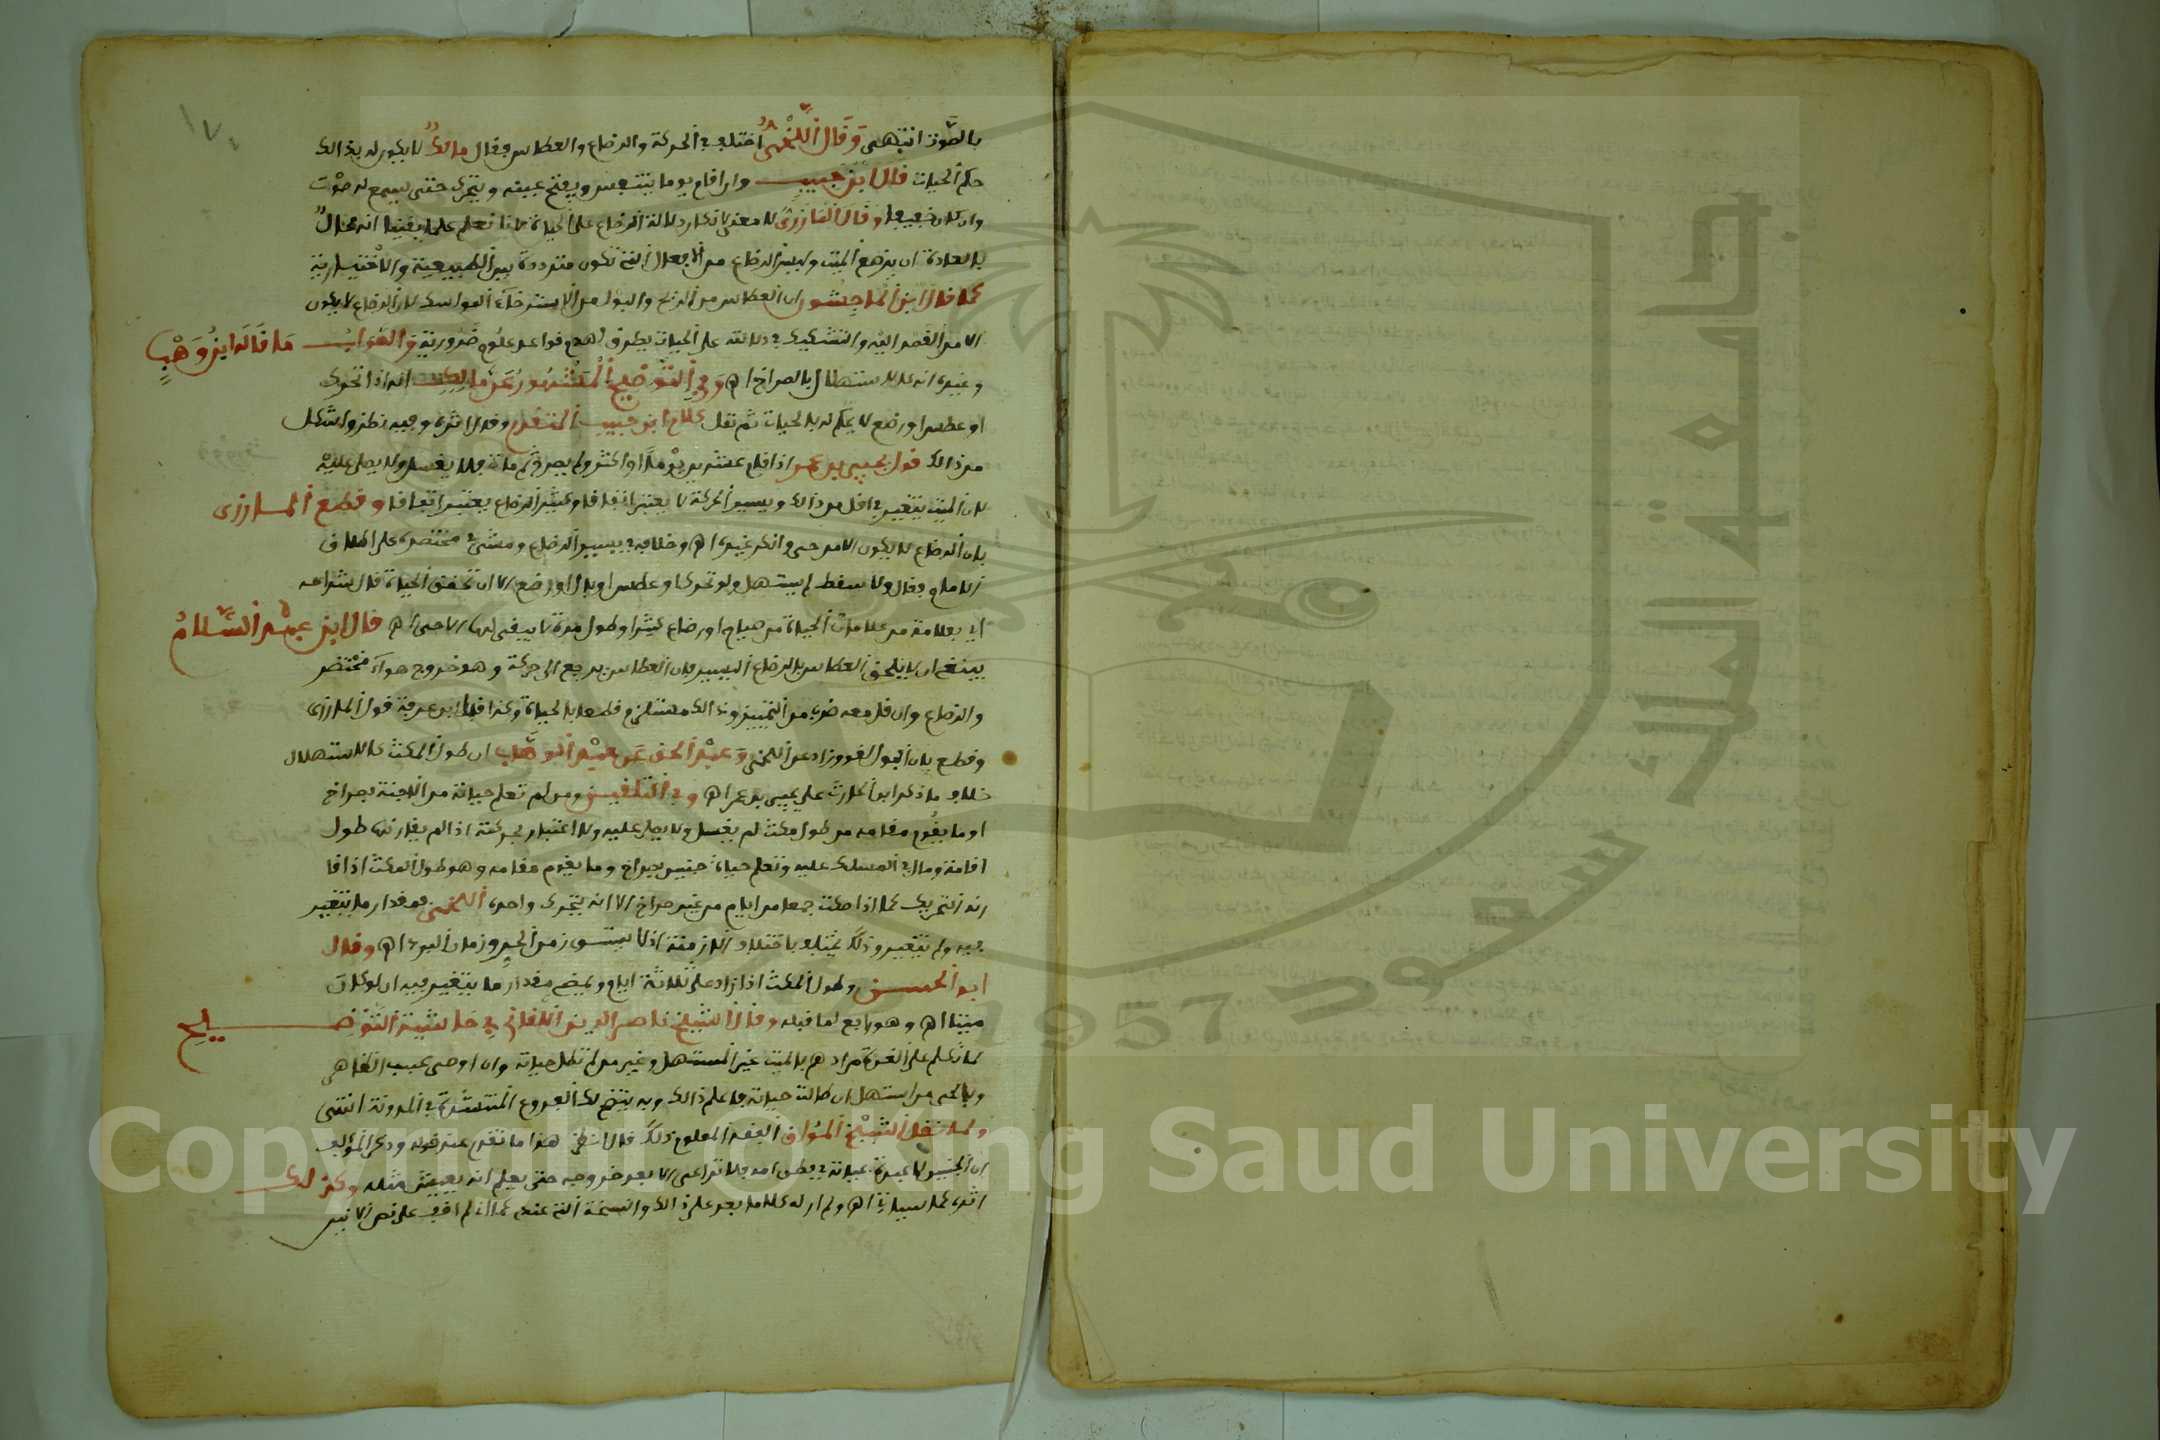 بالصوت انتهى وقال اللخمي اختلف في الحركة والرضاع والعطاس فقال مالك لا يكون له بذالك
حكم الحيات قال ابن حبيب وان اقام يوما يتنفس ويفتح عينه ويتحرك حتى يسمع له صوت
وان كان ضعيفا وقال المازري لا معنى لانكار دلالة الرضاع على الحياة لانا نعلم علما يقينا انه محال
بالعادة ان يرضع الميت وليس الرضاع من الافعال التي تكون مترددة بين الطبيعية والاختيارية
كما قال ابن الماجشون ان العطاس من الريح والبول من استرخاء المواسك لان الرضاع لا يكون
الا من القصد اليه والتشكيك في دلالته على الحيات يطرق الى هدم قواعد علوم ضرورية والصواب ما قاله ابن وهب
وغيره انه كالاستهلال بالصراخ اهـ وفي التوضيح المشهور عن مالك انه اذا تحرك
او عطس او رضع لا يحكم له بالحيات ثم نقل كلام ابن حبيب المتقدم وقال اثره وفيه نظر واشكل
من ذالك قول يحيى بن عمر اذا اقام عشرين يوما او اكثر ولم يصرخ ثم مات فلا يغسل ولا يصلى عليه
لان الميت يتغير في اقل من ذالك ويسير الحركة لا يعتبر اتفاقا وكثير الرضاع يعتبر اتفاقا وقطع المازري
بان الرضاع لا يكون الا من حي وانكر غيره اهـ وخلافه في يسير الرضاع ومشى في مختصره على اطلاق
الامام فقال ولا سقط لم يستهل ولو تحرك او عطس او بال او رضع الا ان تحقق الحياة قال شراحه
اي بعلامة من علامات الحياة من صياح او رضاع كثير او طول مدة لا يبقى لها الا حي اهـ قال ابن عبد السلام
ينبغي ان لا يلحق العطاس بالرضاع اليسير فان العطاس يرجع الى حركة وهو خروج هواء محتضر
والرضاع وان قل معه ضرب من التمييز وذالك مستلزم قطعا بالحياة وكذا قال ابن عرفة قول المازري
وقطع بان البول لغو وزاد عن اللخمي وعبد الحق عن عبد الوهاب ان طول المكث كالاستهلال
خلاف ما ذكر ابن الحارث على يحيى بن عمر اهـ وفي التلقين ومن لم تعلم حياته من الاجنة بصراخ
او ما يقوم مقامه من طول مكث لم يغسل ولا يصل عليه ولا اعتبار بحركته اذا لم يقارنها طول
اقامة ومال في المسلك عليه وتعلم حياة جنين بصراخ وما يقوم مقامه وهو طول المكث اذا قا
رنه التحريك كما اذا مكث جمعا من ايام من غير صراخ الا انه يتحرك واحده اللخمي بمقدار ما يتغير
فيه ولم يتغير وذلك يختلف باختلاف الازمنة اذ لا يستوي زمن الحر وزمان البرد اهـ وقال
ابو الحسن وطول المكث اذا زاد على ثلاثة ايام ويمضي مقدار ما يتغير فيه ان لو كان
ميتا اهـ وهو راجع لما قبله وقال الشيخ ناصر الدين اللقاني في حاشيته التوضيح
لما تكلم على الغرة مرادهم بالميت غير المستهل وغير من لم تطل حياته وان اوصى عجب الظاهر
وبالحي من استهل او طالت حياته فاعلم ذالك وبه يتضح لك الفروع المنتشرة في المدونة انتهى
ولما نقل الشيخ المواق الفقه المعلوم ذلك قال انظر هذا ما تقدم عند قوله
ان الجنين لا عبرة بحياته في بطن امه فلا تراعى الا بعد خروجه حتى يعلم انه يعيش مثله وكذالك
اثره كما سياتي اهـ ولم ار له كلاما بعد على ذالك والنسخة التي عنده كما اني لم اقف على نص الا نبر
Copyright © King Saud University
جامعة الملك سعود
1957